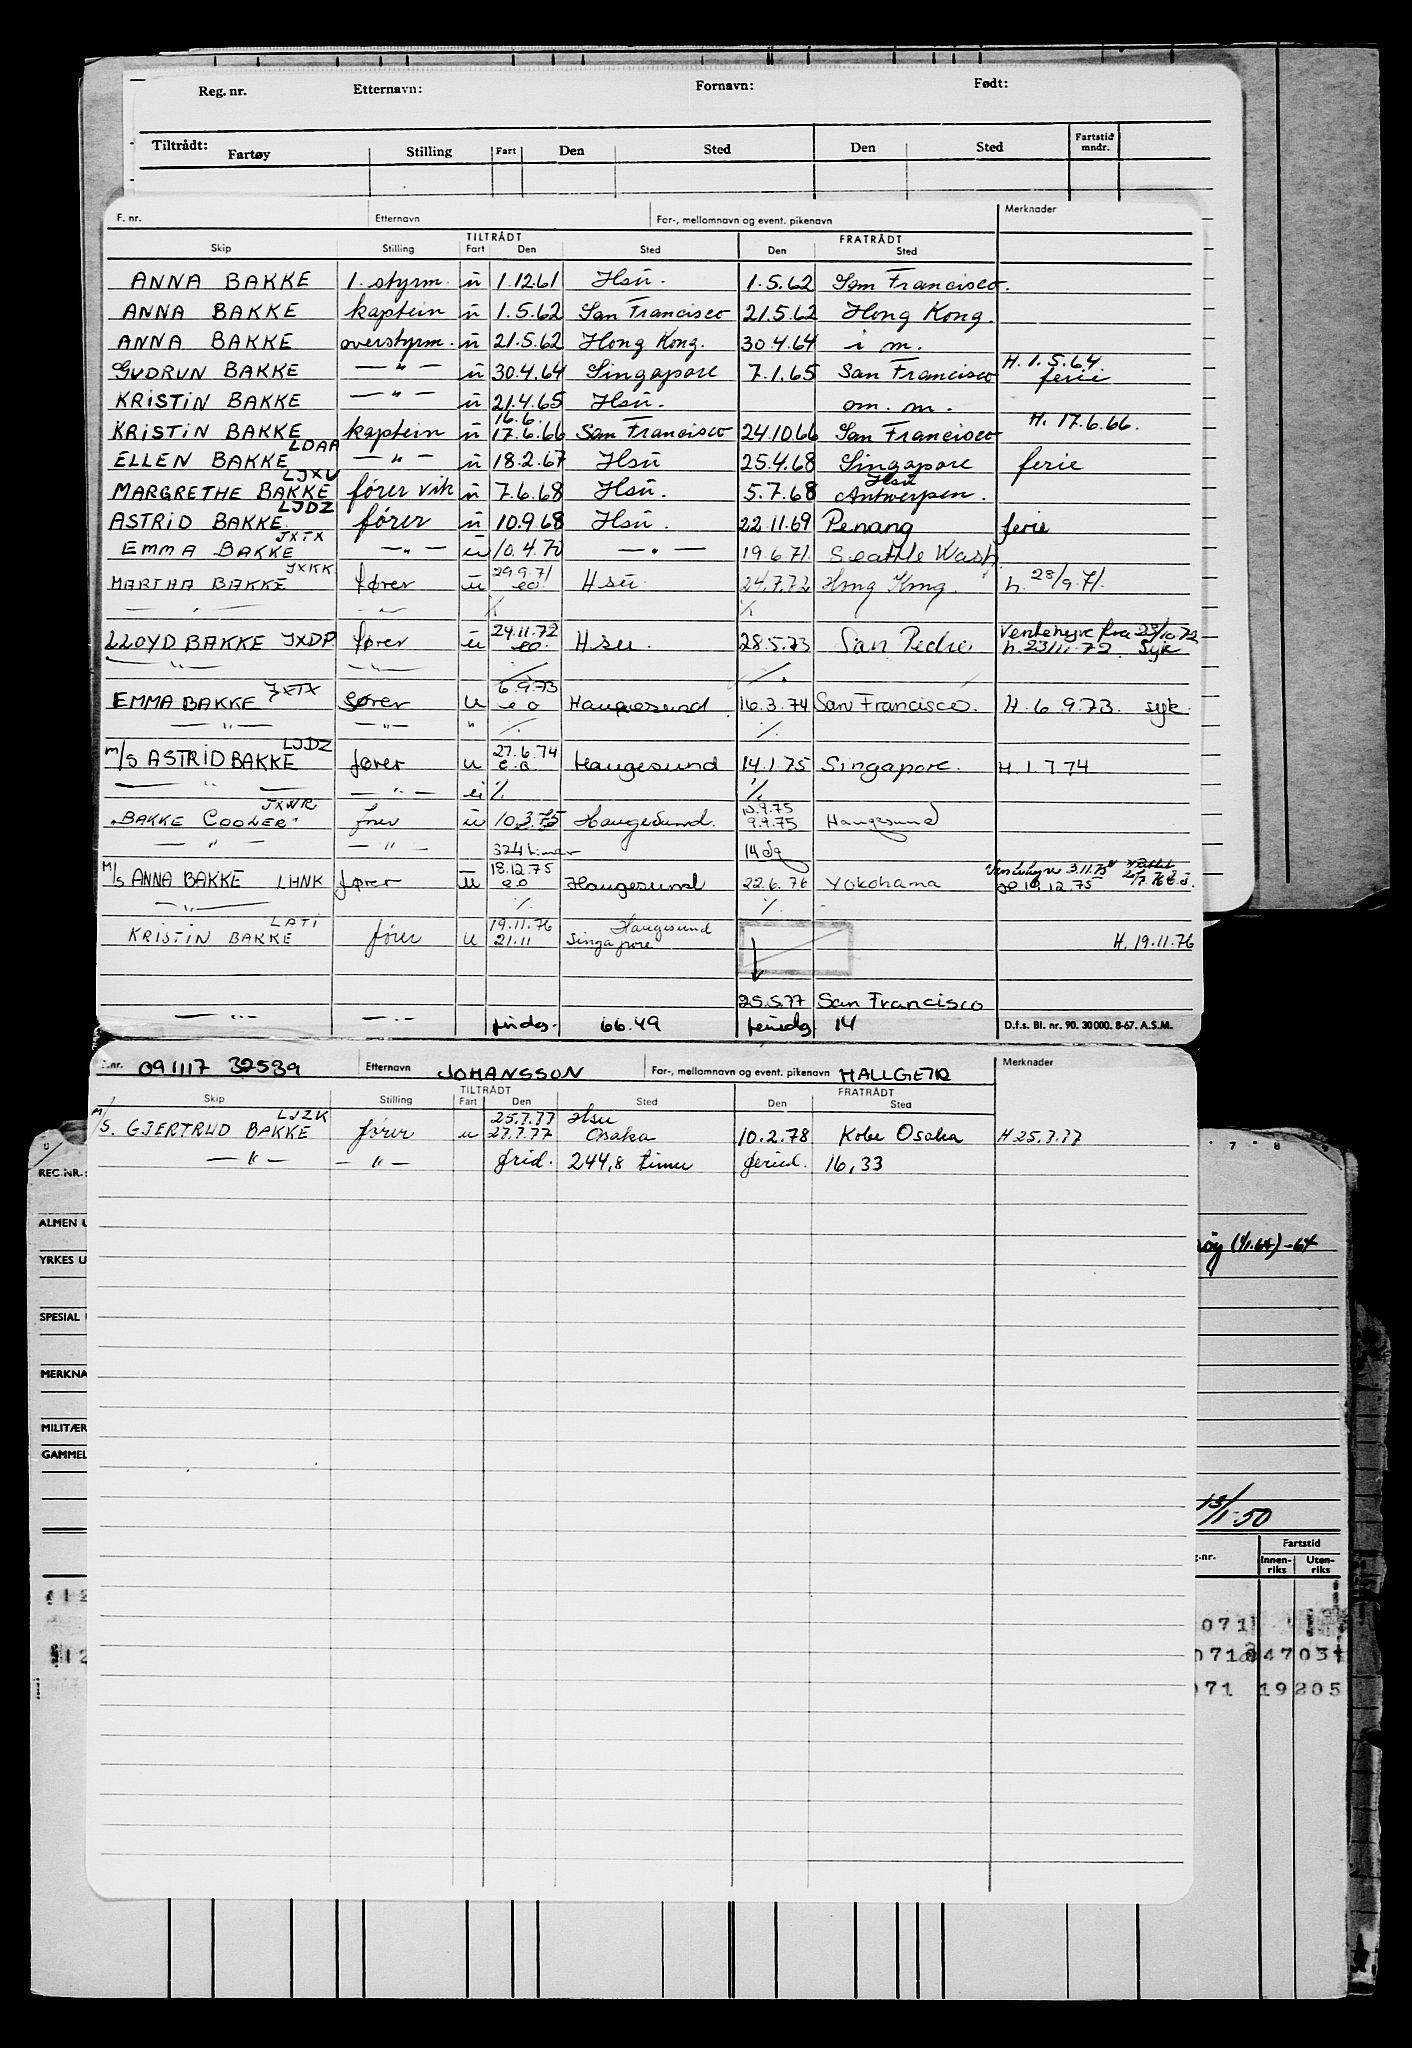 Reg. nr. Etternavn: Fornavn: Født:
Tiltrådt: Fartøy Stilling Fart Den Sted Den Sted Fartstid mndr.
F. nr. Etternavn For-, mellomnavn og event. pikenavn Merknader
TILTRÅDT FRATRÅDT
Skip Stilling Fart Den Sted Den Sted
ANNA BAKKE 1. styrm. u 1.12.61 Hsu. 1.5.62 San Francisco.
ANNA BAKKE kaptein u 1.5.62 San Francisco 21.5.62 Hong Kong.
ANNA BAKKE overstyrm. u 21.5.62 Hong Kong. 30.4.64 i m.
GUDRUN BAKKE — " — u 30.4.64 Singapore 7.1.65 San Francisco H. 1.5.64 ferie
KRISTIN BAKKE — " — u 21.4.65 Hsu. om. m.
KRISTIN BAKKE kaptein u 16.6. 17.6.66 San Francisco 24.10.66 San Francisco H. 17.6.66.
ELLEN BAKKE LDAA — " — u 18.2.67 Hsu 25.4.68 Singapore ferie
MARGRETHE BAKKE LJXU fører vik u 7.6.68 Hsu. 5.7.68 Hsu Antwerpen.
ASTRID BAKKE LJDZ fører u 10.9.68 Hsu. 22.11.69 Penang ferie
EMMA BAKKE JXTX — " — u 10.4.70 — " — 19.6.71 Seattle Wash.
MARTHA BAKKE JXKK fører u 29.9.71 eo. Hsu. 24.7.72 Hong Kong. h. 28/9.71.
— " — — " — % %
LLOYD BAKKE JXDP fører u 24.11.72 eo. Hsu. 28.5.73 San Pedro Ventehyre fra 28/10.72 h. 23/11.72 Syk
— " — — " — % %.
EMMA BAKKE JXTX fører u 6.9.73 e o Haugesund 16.3.74 San Francisco. H. 6.9.73. syk
— " — — " — " % %
M/S ASTRID BAKKE LJDZ fører u 27.6.74 e.o. Haugesund 14.1.75 Singapore. H. 1.7.74
— " — — " — % %
"BAKKE COOLER" JXWR fører u 10.3.75 Haugesund. 10.9.75 9.9.75 Haugesund
— " — — " — 324 timer 14 dg
M/S ANNA BAKKE LHNK fører u 18.12.75 eo Haugesund 22.6.76 Yokohama 3.11.75 18.12.75
— " — % %
KRISTIN BAKKE LATI fører u 19.11.76 21.11 Haugesund Singapore H. 19.11.76
25.5.77 San Francisco
— " — — " — fridg. 66.49 feriedg 14 D.f.s. Bl. nr. 90. 30000. 8-67. A.S.M.
F. nr. 091117 32539 Etternavn JOHANSSON For-, mellomnavn og event. pikenavn HALLGEIR Merknader
TILTRÅDT FRATRÅDT
Skip Stilling Fart Den Sted Den Sted
M/S. GJERTRUD BAKKE LJZK fører u 25.7.77 27.7.77 Hsu Osaka 10.2.78 Kobe Osaka H 25.7.77
— " — — " — frid. 244,8 timer feried. 16,33
7 8 9
REG.NR.:
ALMEN U
YRKES U (1/1.64) -64
SPESIAL
MERKNA
MILITÆR
GAMMEL
13/1-50
nr. Fartstid
Innen-riks Uten-riks
12 071
12 071 4703
071 19205